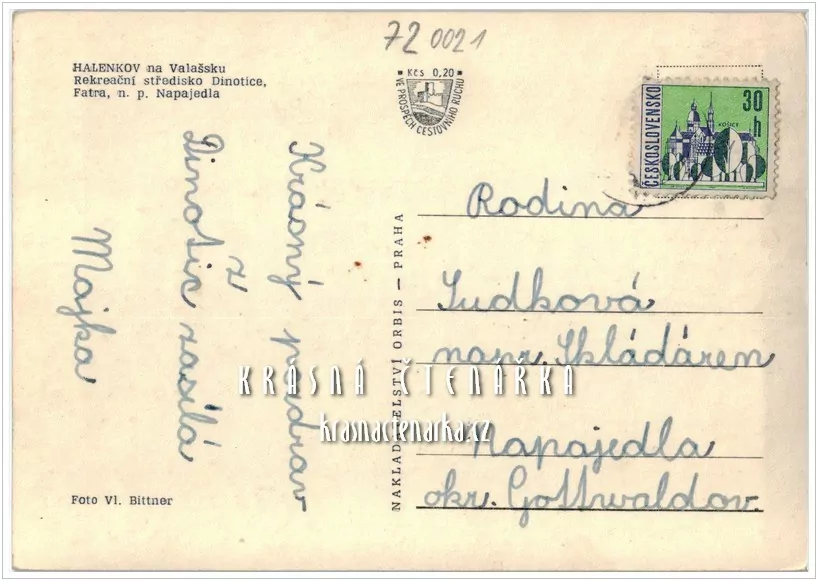 72 0021
HALENKOV na Valašsku
Rekreační středisko Dinotice,
Fatra, n. p. Napajedla
Kčs 0,20
VE PROSPĚCH CESTOVNÍHO RUCHU
ČESKOSLOVENSKO
30 h
KOŠICE
Krásný pozdrav
z
Dinotic zasílá
Majka
NAKLADATELSTVÍ ORBIS — PRAHA
Rodina
Sudková
napr. Skládáren
Napajedla
okr. Gottwaldov.
KRÁSNÁ ČTENÁŘKA
krasnactenarka.cz
Foto Vl. Bittner